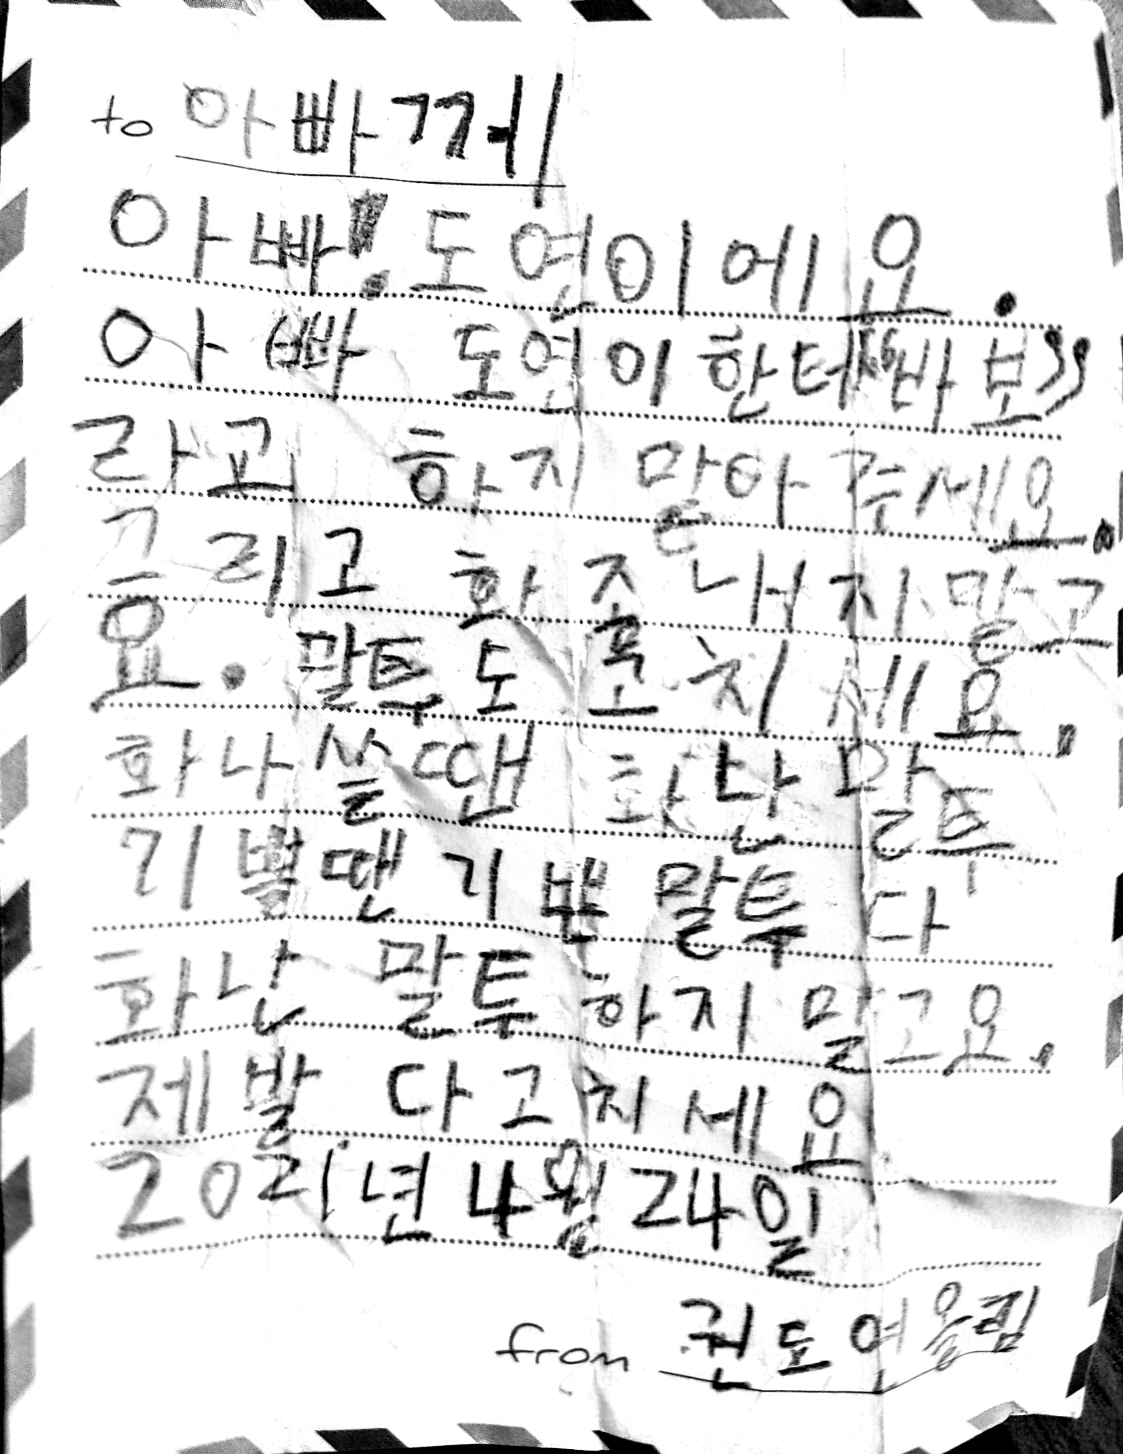 to 아빠께
아빠! 도연이에요.
아빠 도연이한테 "바보"
라고 하지 말아주세요.
그리고 화 좀 내지 말고
요. 말투도 곤치세요.
화나쓸땐 화난 말투
기쁠땐 기쁜 말투 다
화난 말투 하지 말고요.
제발 다 고치세요
2021년 4월 24일
from 권도연올림